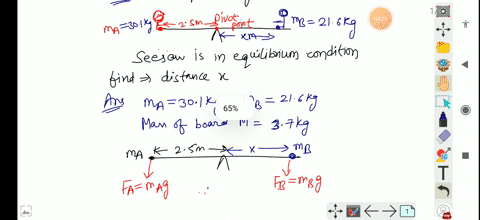 mA=30.1kg 2.5m pivot point xm mB=21.6kg
Seesaw is in equilibrium condition
find ⇒ distance x
Ans mA=30.1k B=21.6kg
65%
Mass of board M = 3.7kg
mA 2.5m x mB
FA=mAg FB=mBg
1